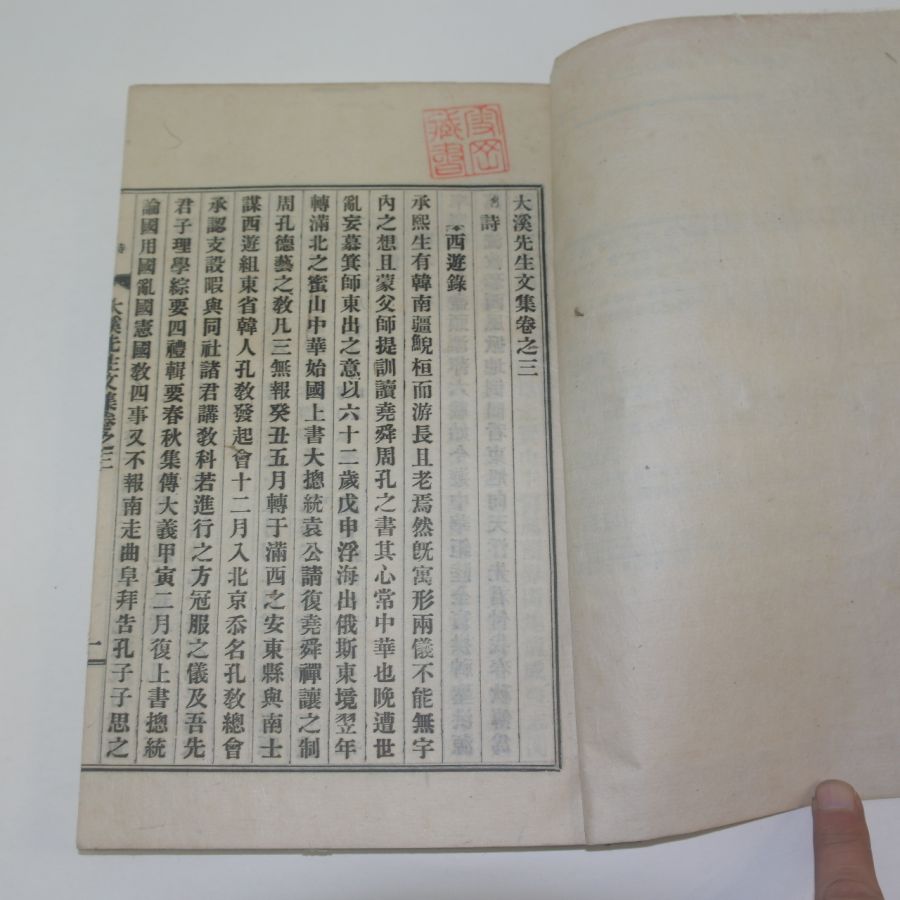 大溪先生文集卷之三
詩
西遊錄
承熙生有韓南疆鯢桓而游長且老焉然旣寓形兩儀不能無字
內之想且蒙父師提訓讀堯舜周孔之書其心常中華也晚遭世
亂妄慕箕師東出之意以六十二歲戊申浮海出俄斯東境翌年
轉滿北之蜜山中華始國上書大摠統袁公請復堯舜禪讓之制
周孔德藝之敎凡三無報癸丑五月轉于滿西之安東縣與南士
謀西遊組東省韓人孔敎發起會十二月入北京忝名孔敎總會
承認支設暇與同社諸君講敎科若進行之方冠服之儀及吾先
君子理學綜要四禮輯要春秋集傳大義甲寅二月復上書摠統
論國用國亂國憲國敎四事又不報南走曲阜拜告孔子子思之
大溪先生文集卷之三
詩
一
雪岡
藏書